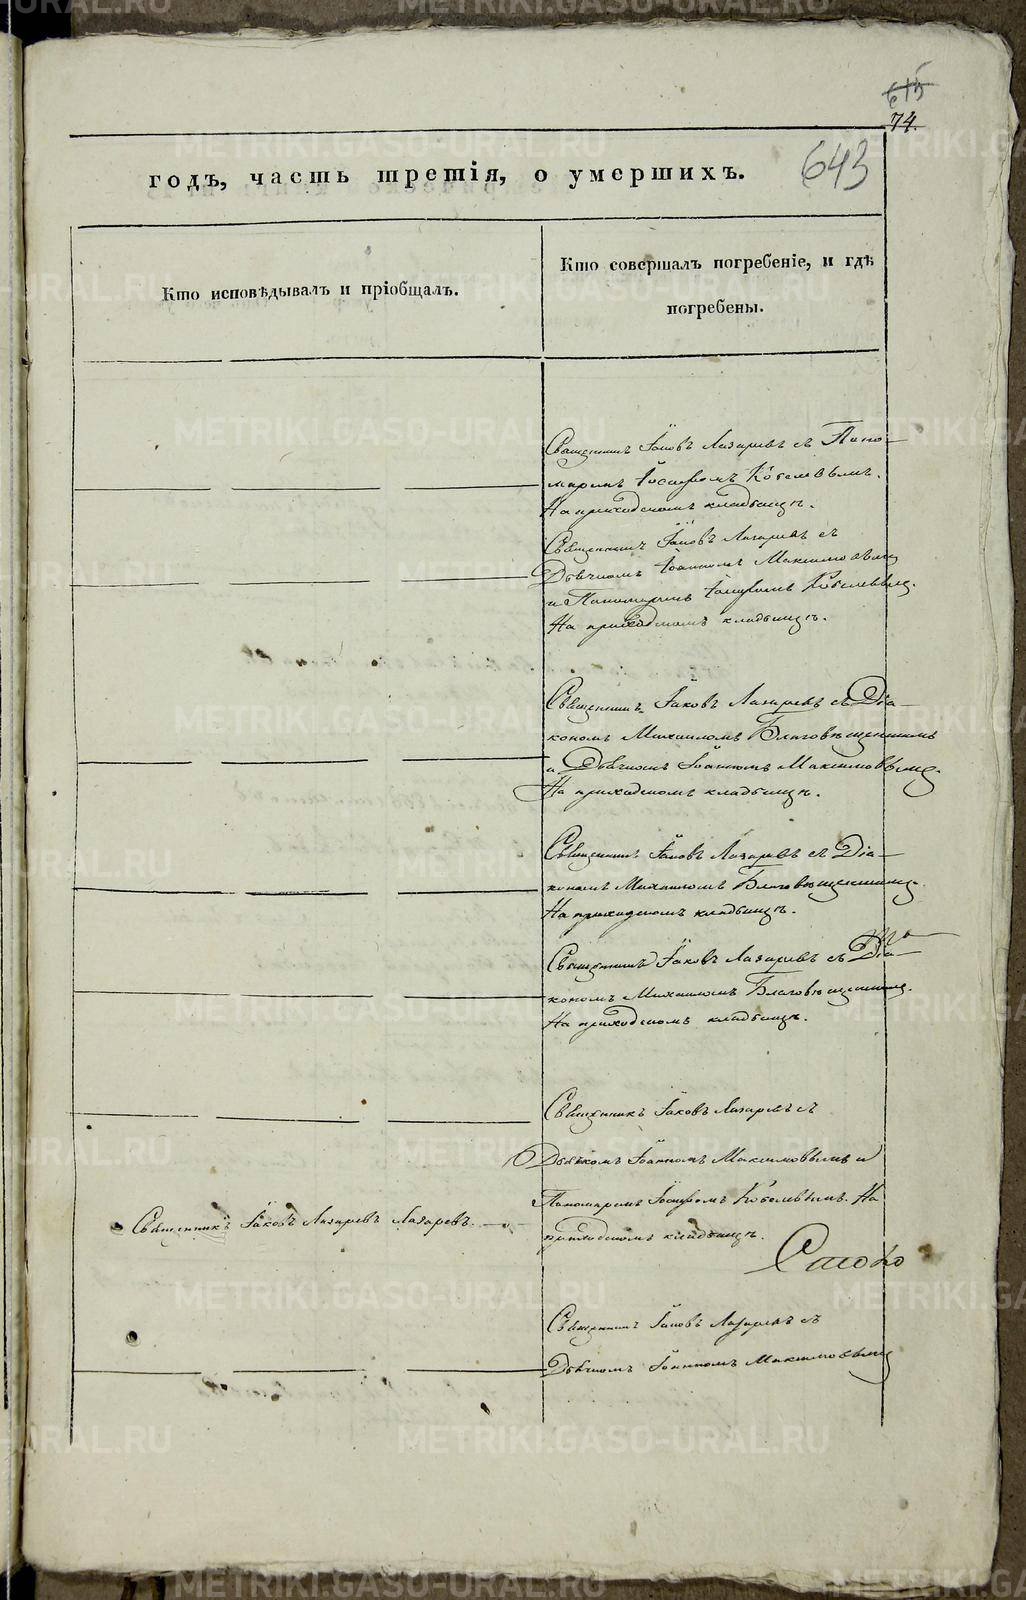 615
74.
643
годъ, часть третія, о умершихъ.
Кто исповѣдывалъ и пріобщалъ.
Кто совершалъ погребеніе, и гдѣ
погребены.
Священникъ Іаковъ Лазаревъ съ Поно-
маремъ Іосифомъ Кобелевымъ.
На приходскомъ кладбищѣ.
Священникъ Іаковъ Лазаревъ съ
Дьячкомъ Іоанномъ Максимовымъ
и Пономаремъ Іосифомъ Кобелевымъ.
На приходскомъ кладбищѣ.
Священникъ Іаковъ Лазаревъ съ Діа-
кономъ Михаиломъ Благовѣщенскимъ
и Дьячкомъ Іоанномъ Максимовымъ.
На приходскомъ кладбищѣ.
Священникъ Іаковъ Лазаревъ съ Діа-
кономъ Михаиломъ Благовѣщенскимъ.
На приходскомъ кладбищѣ.
Священникъ Іаковъ Лазаревъ съ Діа-
кономъ Михаиломъ Благовѣщенскимъ.
На приходскомъ кладбищѣ.
Священникъ Іаковъ Лазаревъ съ
Дьячкомъ Іоанномъ Максимовымъ и
Пономаремъ Іосифомъ Кобелевымъ. На
приходскомъ кладбищѣ.
Священникъ Іаковъ Лазаревъ Лазаревъ.
Священникъ Іаковъ Лазаревъ съ
Дьячкомъ Іоанномъ Максимовымъ
METRIKI.GASO-URAL.RU